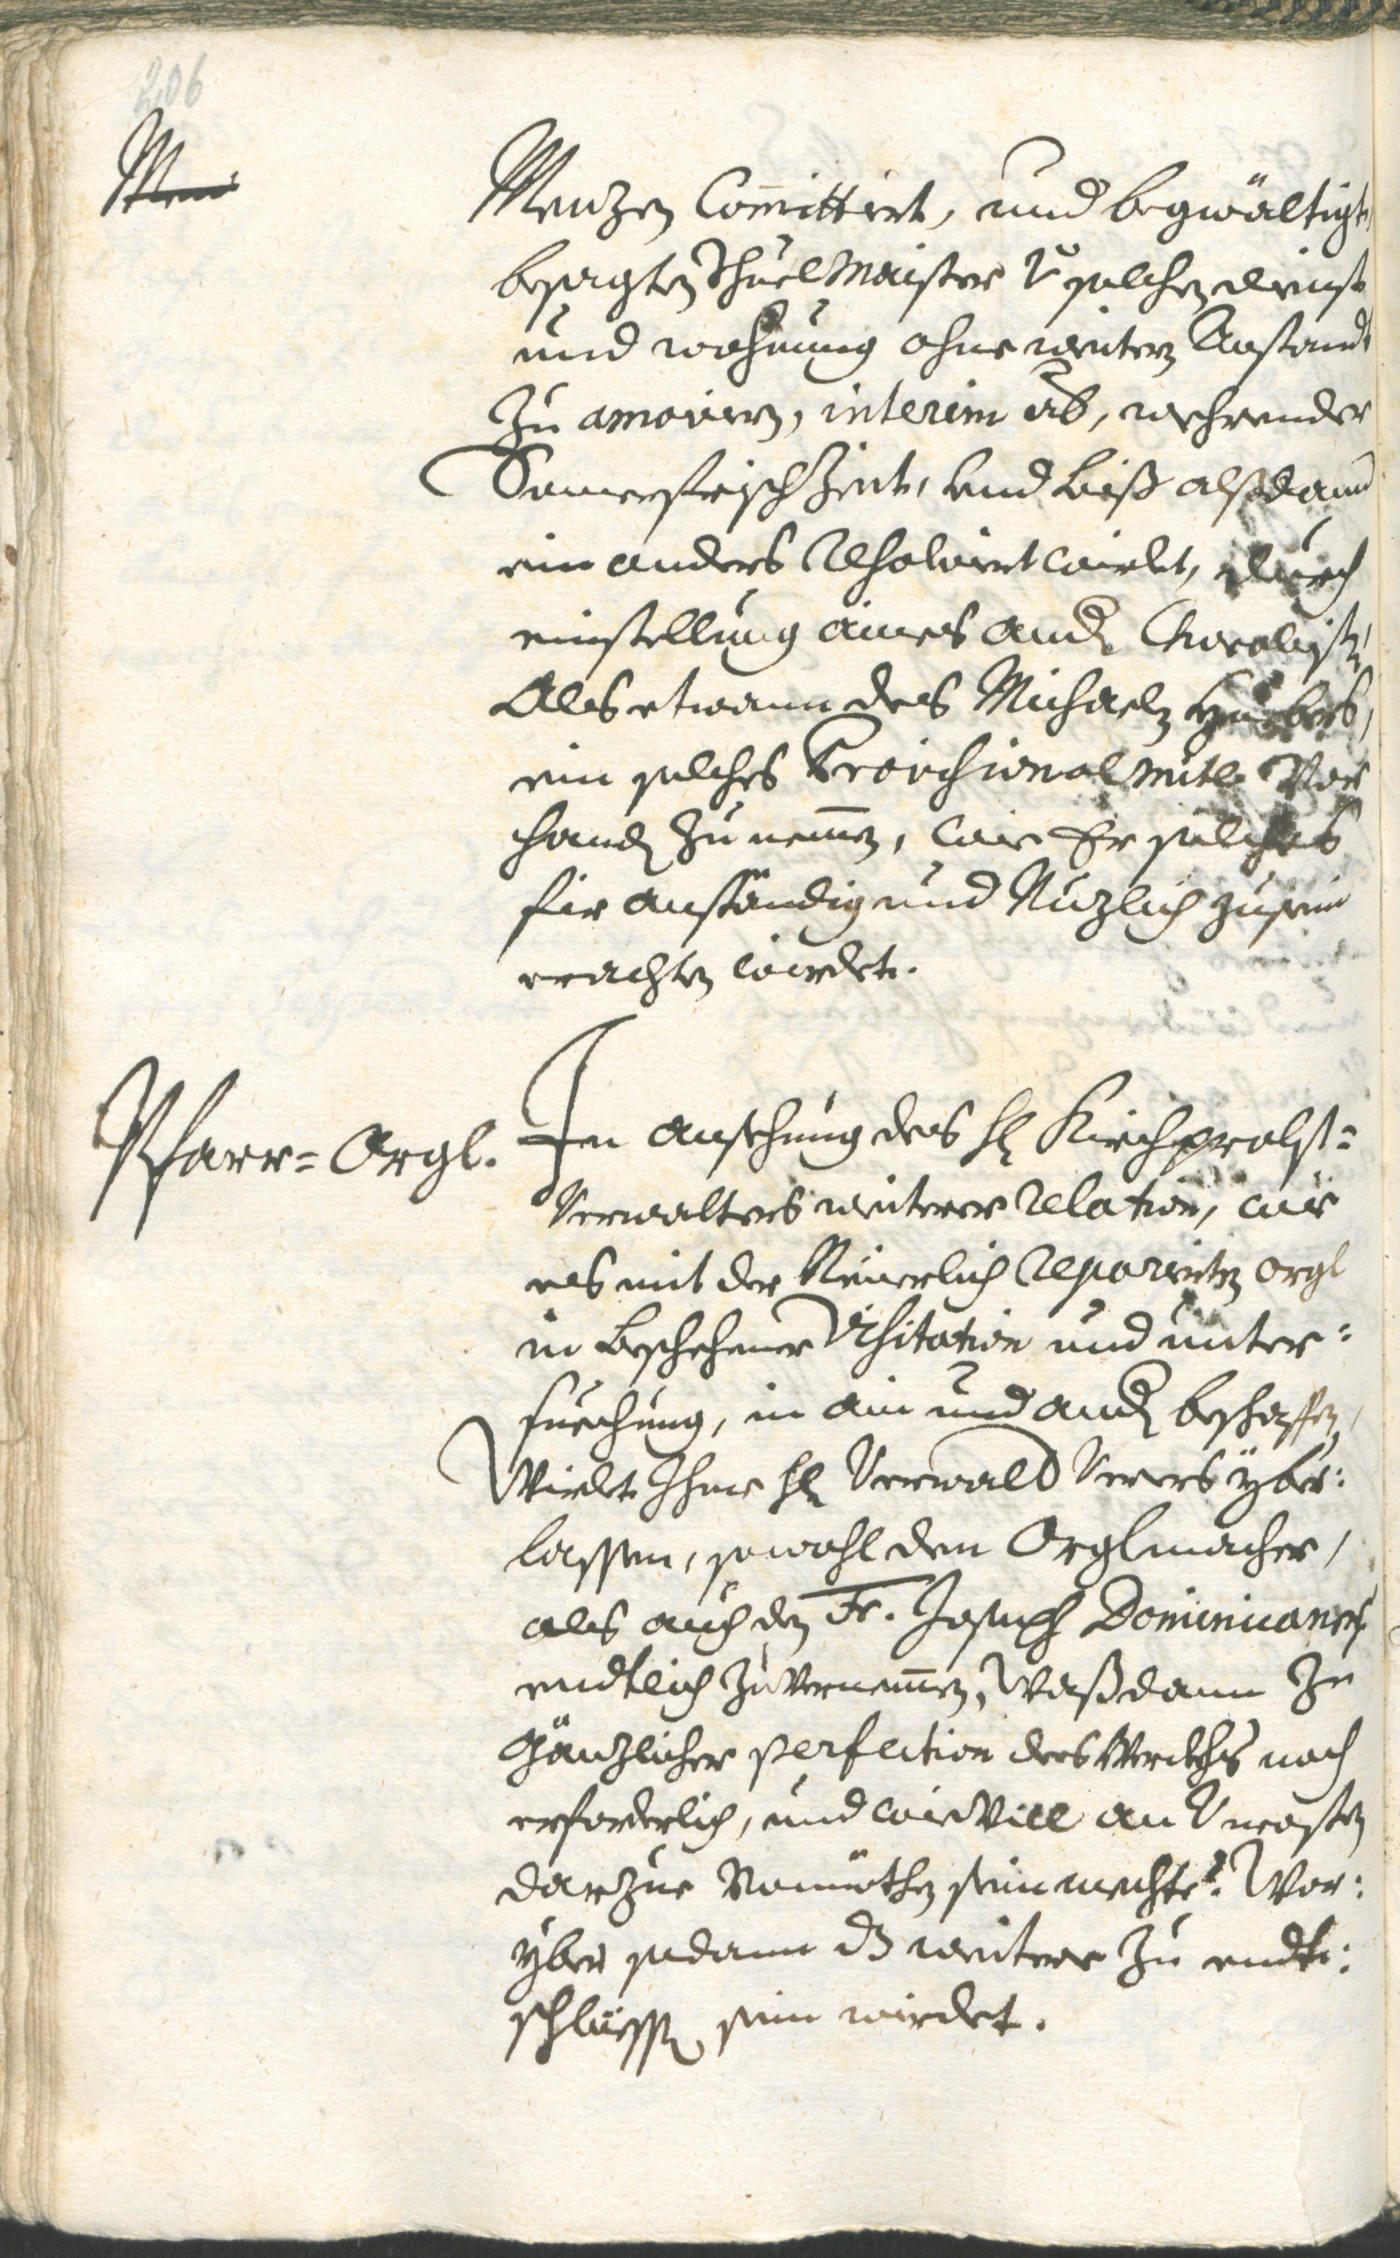 206
Men
Menzen Com̄ittirt, und begwältigt,
besagten Schuelmaister von solchen dienst
und wohnung ohne weitern Anstandt
zu amoviern, interim aber, wehrender
Som̄erfrisch Zeit, und biß alßdann
ein anders Resolvirt wirdet, durch
einstellung aines andern Choralisten,
Als etwann des Michaeln Huebers,
ein solches Provisional mitl vor
handen zu nem̄en, wie Er solches
für anständig und Nuzlich zu sein
erachten wirdet.
Pfarr= Orgl.
In ansehung des hl Kirchprobst=
Verwalters weiterer relation, wie
es mit der Neuerlich reparirten orgl
in beschehener Visitation und unter=
suechung, in ain und andern beschaffen,
Wirdet Ihme hl Verwalter yber:
lassen, sowohl den Orglmacher,
als auch den Fr. Joseph Dominicaner
endtlich zuvernem̄en, Waß dann zu
Gänzlicher perfection des Werckhs noch
erforderlich, und wie vill an Uncosten
darzue Vonnöthen sein mechte? Wor:
yber sodann dz weitere zu endt:
schliessen sein wirdet.